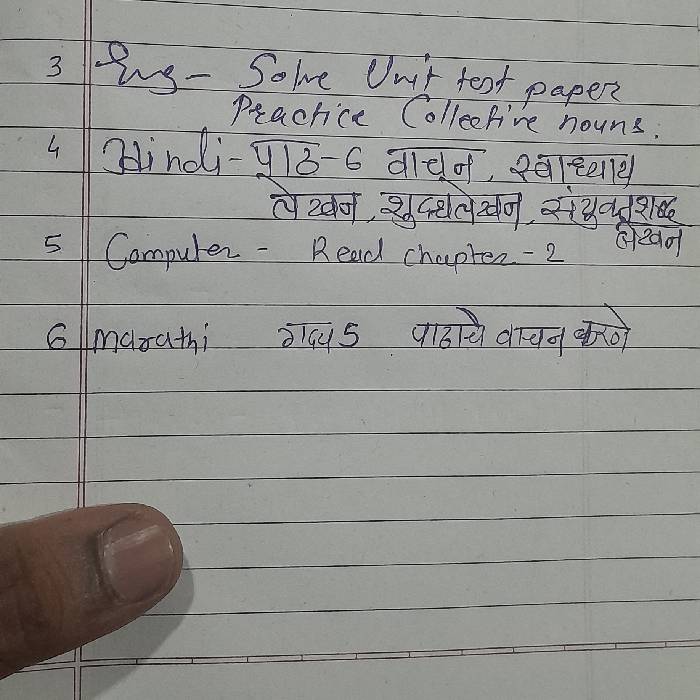 3 Eng - Solve Unit test paper
Practice Collective nouns.
4 Hindi - पाठ-6 वाचन, स्वाध्याय
लेखन, शुद्धलेखन, संयुक्तशब्द
लेखन
5 Computer - Read chapter - 2
6 Marathi गद्य 5 पाठाचे वाचन करणे